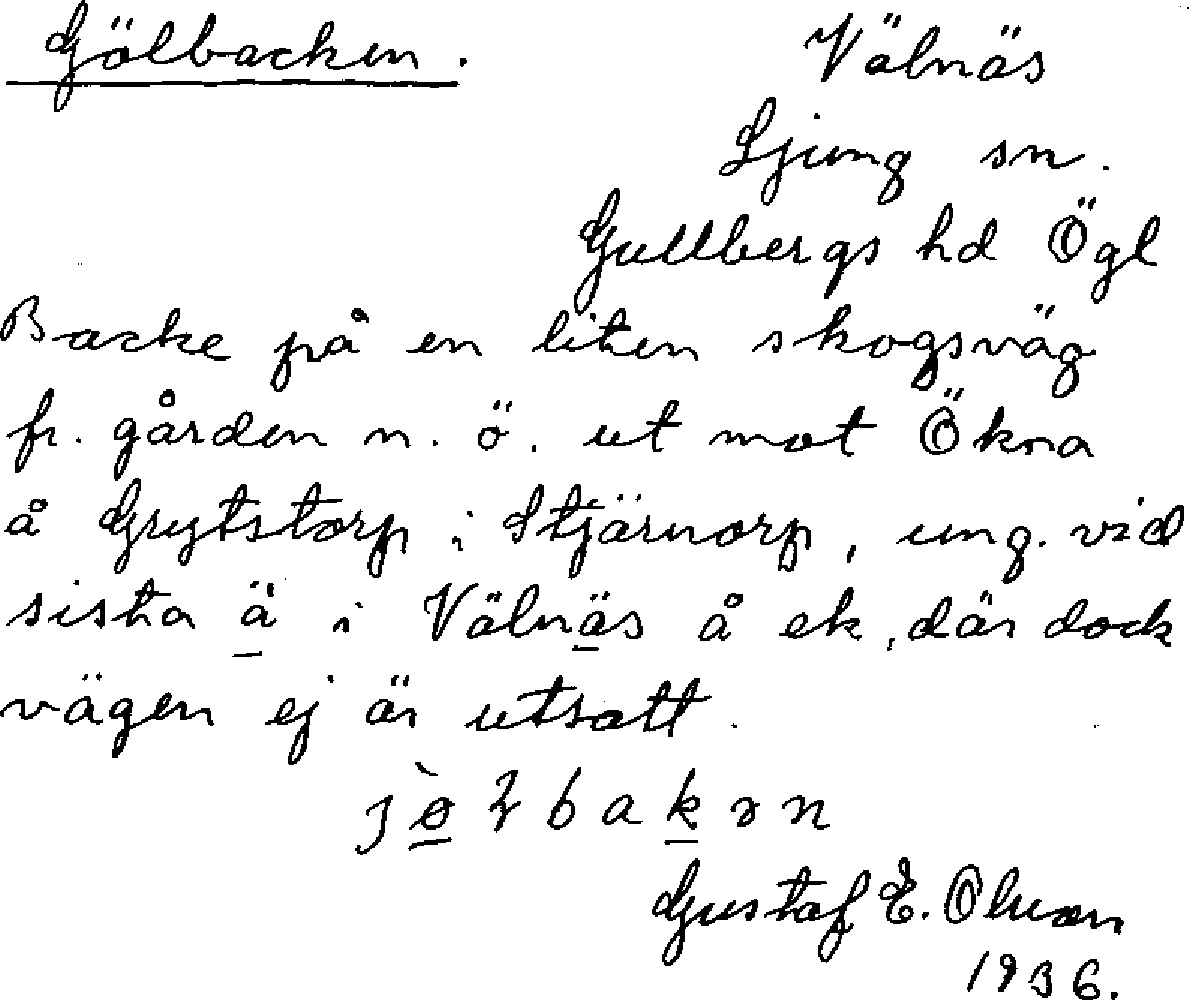 Gölbacken.
Välnäs
Ljung sn.
Gullbergs hd Ögl
Backe på en liten skogsväg
fr. gården n. ö. ut mot Ökna
å Grytstorp i Stjärnorp, ung. vid
sista ä i Välnäs å ek, där dock
vägen ej är utsatt.
Gustaf E.
1936.